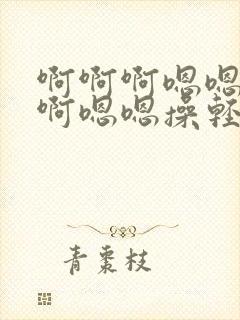 啊啊啊嗯嗯
啊嗯嗯操轻
青枣枝